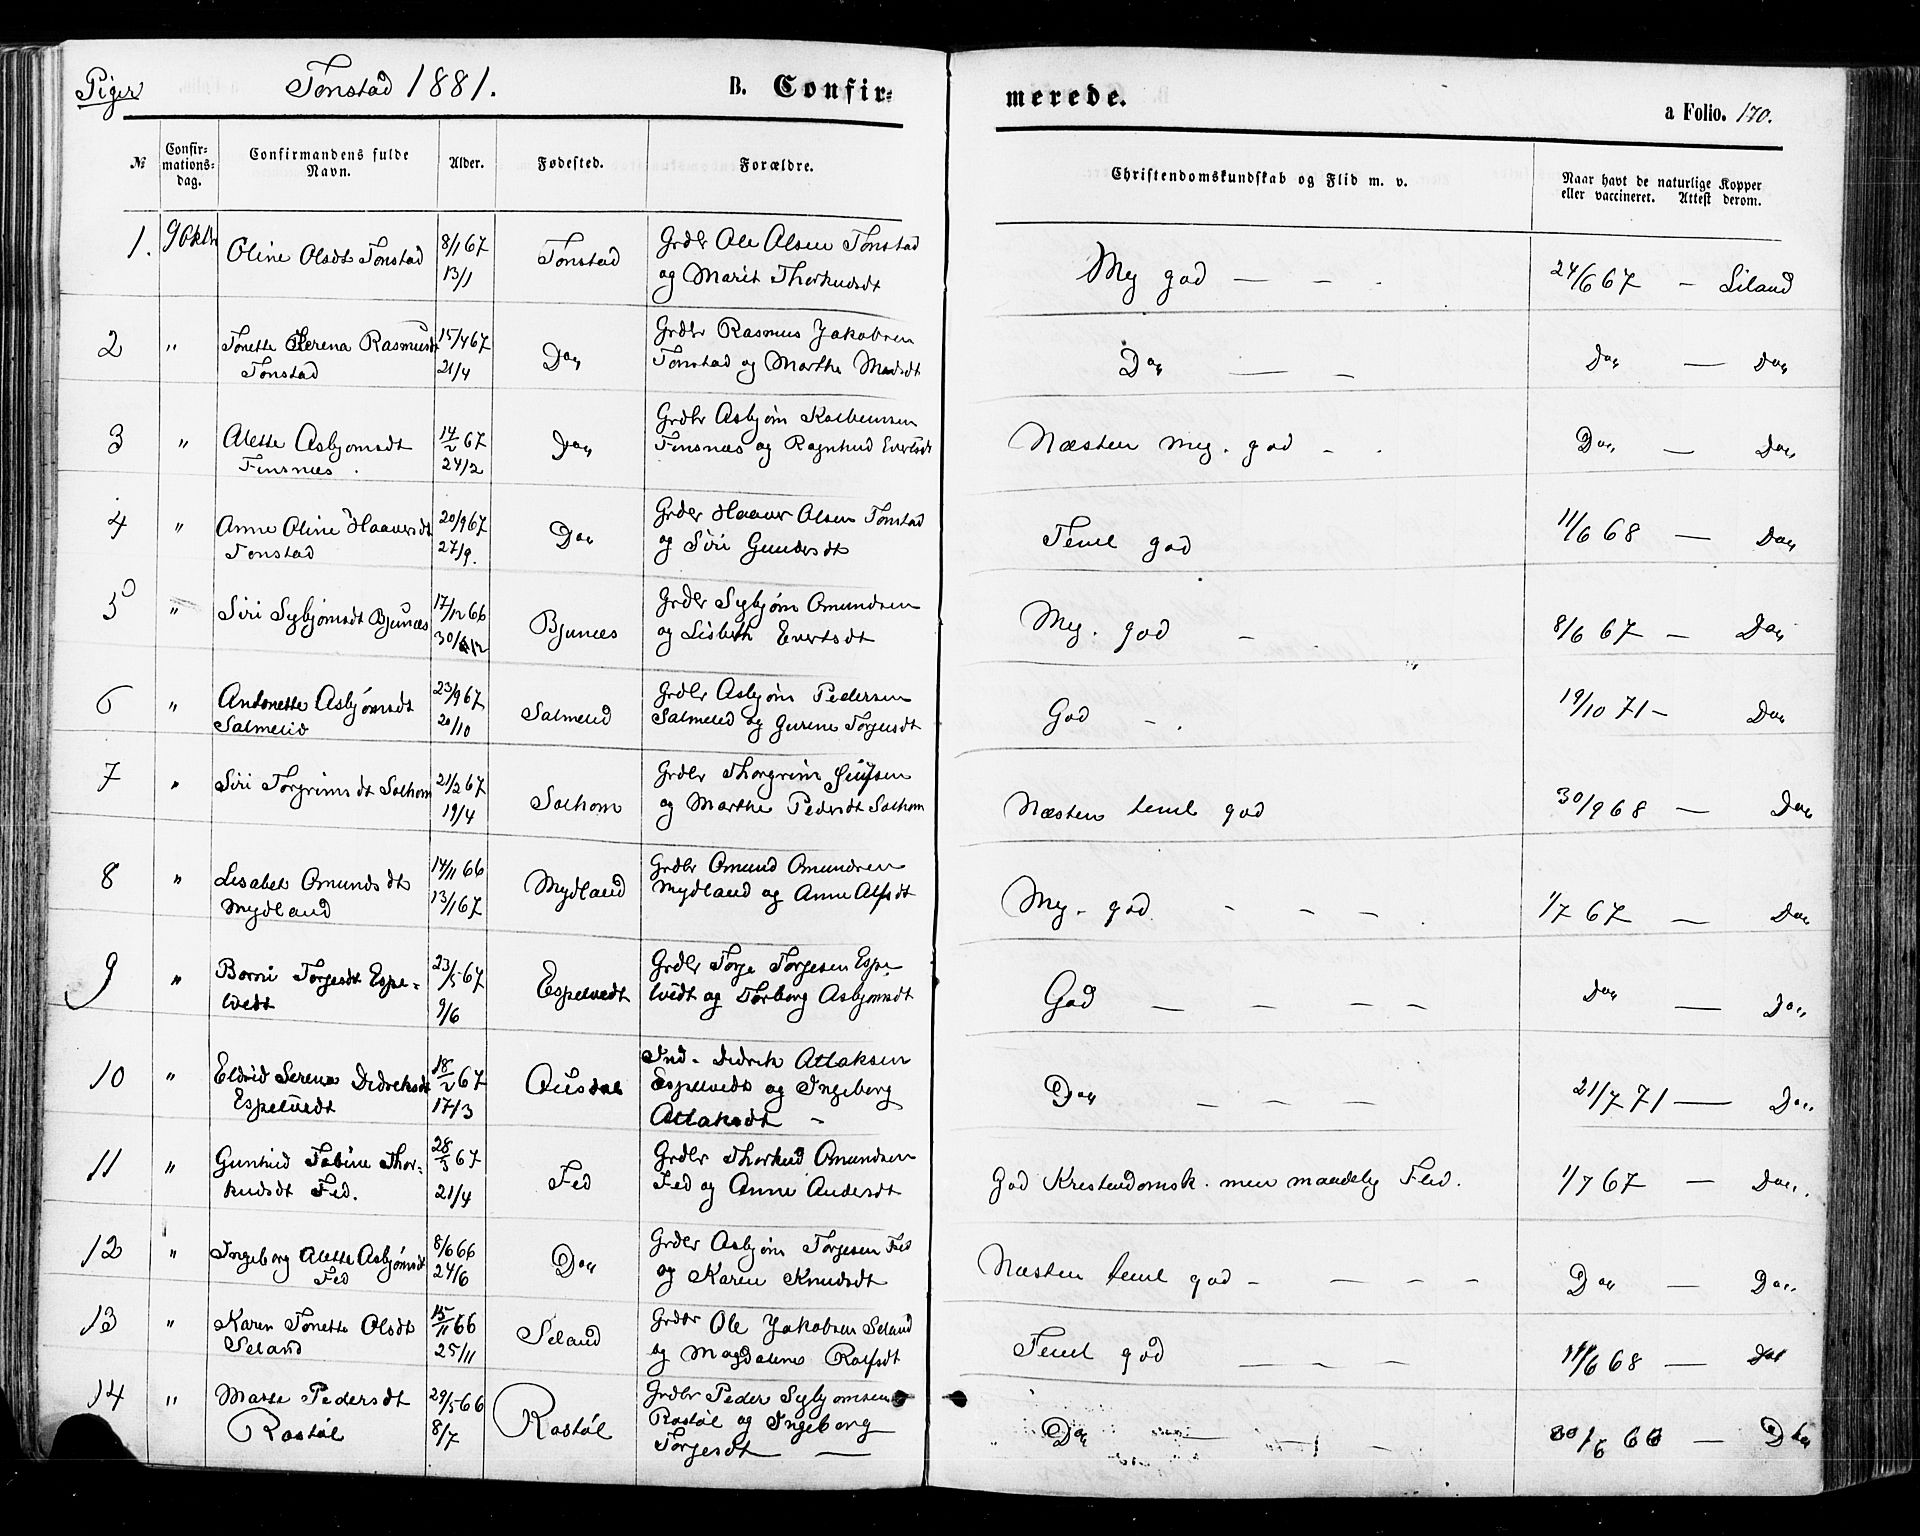 Piger Tonstad 1881. B. Confir- merede. a Folio. 170.
№ Confir-mations-dag. Confirmandens fulde Navn. Alder. Fødested. Forældre. Christendomskundskab og Flid m. v. Naar havt de naturlige Kopper eller vaccineret. Attest derom.
1. 9 Oktb Oline Olsdt Tonstad 8/1 67 Tonstad Grdbr Ole Olsen Tonstad Mg god — - . 24/6 67 - Liland
13/1 og Marit Thorkildsdt
2 " Tonette Serena Rasmusdt 15/4 67 Do Grdbr Rasmus Jakobsen Do — - Do — Do
Tonstad 21/4 Tonstad og Marthe Madsdt
3 " Alette Asbjørnsdt 14/2 67 Do Grdbr Asbjørn Kolbensen Næsten mg. god - . Do — Do
Finsnæs . 24/2 Finsnæs og Ragnhild Evertsdt
4 " Anne Oline Haaversdt 20/9 67 Do Grdbr Haaver Olsen Tonstad Teml god 11/6 68 — Do
Tonstad 27/9. og Siri Gundersdt
5 " Siri Sybjørnsdt Bjunæs 17/12 66 Bjunæs Grdbr Sybjørn Omundsen Mg. god - 8/6 67 — Do
30/12 og Lisbeth Evertsdt
6 " Antonette Asbjørnsdt 23/9 67 Salmelid Grdbr Asbjørn Pedersen God - . 19/10 71 - Do
Salmelid 20/10 Salmelid og Gurene Torgersdt
7 " Siri Torgrimsdt Solhom 21/2 67 Solhom Grdbr Thorgrim Næsten teml god 30/9 68 — Do
19/4 og Marthe Pedersdt Solhom
8 " Lisabet Omundsdt 14/11 66 Mydland Grdbr Omund Omundsen Mg. god - - - 1/7 67 — Do
Mydland 13/1 67 Mydland og Anne Alfsdt
9 " Borni Torjesdt Espe- 23/5 67 Espetvedt Grdbr Torje Torjesen Espe- God — — — — Do — Do
tvedt 9/6 tvedt og Torborg Asbjørnsdt
10 " Eldrid Serena Didriksdt 18/2 67 Ousdal Ind. Didrik Atlaksen Do - — — 21/7 71 — Do
Espetvedt 17/3 Espetvedt og Ingeborg
Atlaksdt -
11 " Gunhild Tobine Thor- 28/3 67 Fed Grdbr Thorkild Omundsen God Kristendomsk. men maadelig Flid. 1/7 67 — Do.
kildsdt Fed. 21/4 Fed og Anne Andersdt
12 " Ingeborg Alette Asbjørnsdt 8/6 66 Do Grdbr Asbjørn Torjesen Fed Næsten teml god - — - - Do — Do
Fed 24/6 og Karen Knudsdt
13 " Karen Tonette Olsdt 15/11 66 Seland Grdbr Ole Jakobsen Seland Teml god — — — 11/6 68 — Do
Seland 25/11 og Magdalene Rolfsdt
14 " Marte Pedersdt 29/5 66 Rostøl Grdbr Peder Sybjørnsen Do 30/6 66 — Do
Rostøl 8/7 Rostøl og Ingeborg
Torjesdt —